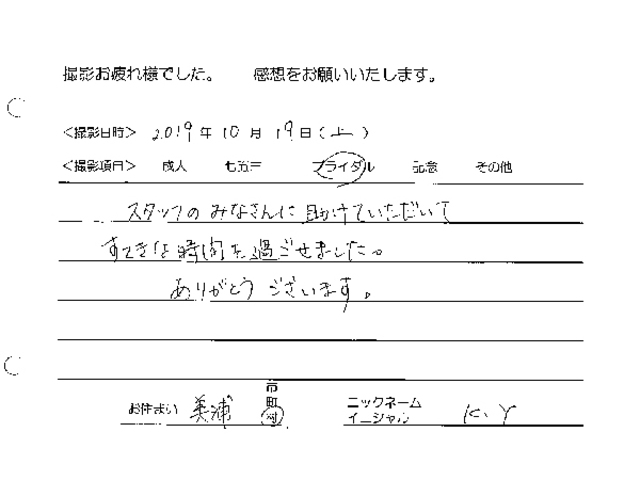 撮影お疲れ様でした。 感想をお願いいたします。
<撮影日時> 2019年10月19日(土)
<撮影項目> 成人 七五三 ブライダル 記念 その他
スタッフのみなさんに助けていただいて
すてきな時間を過ごせました。
ありがとうございます。
お住まい 美浦 市 町 村
ニックネーム
イニシャル K.Y